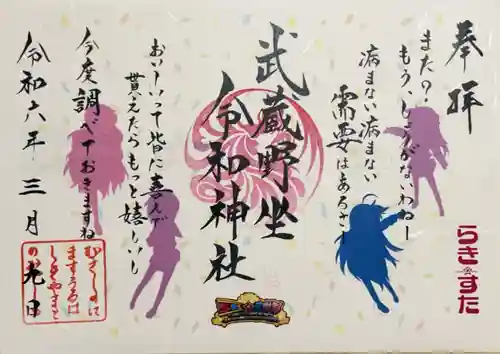 奉拝
またの?
もう、しょうがないわねー
病まない病まない
需要はあるさ
武蔵野坐
令和神社
おいしいって皆に喜んで
貰えたらもっと嬉しいし
今度調べておきますね
令和六年三月
九日
むさしのに
ますうるは
しきやまと
らき☆すた